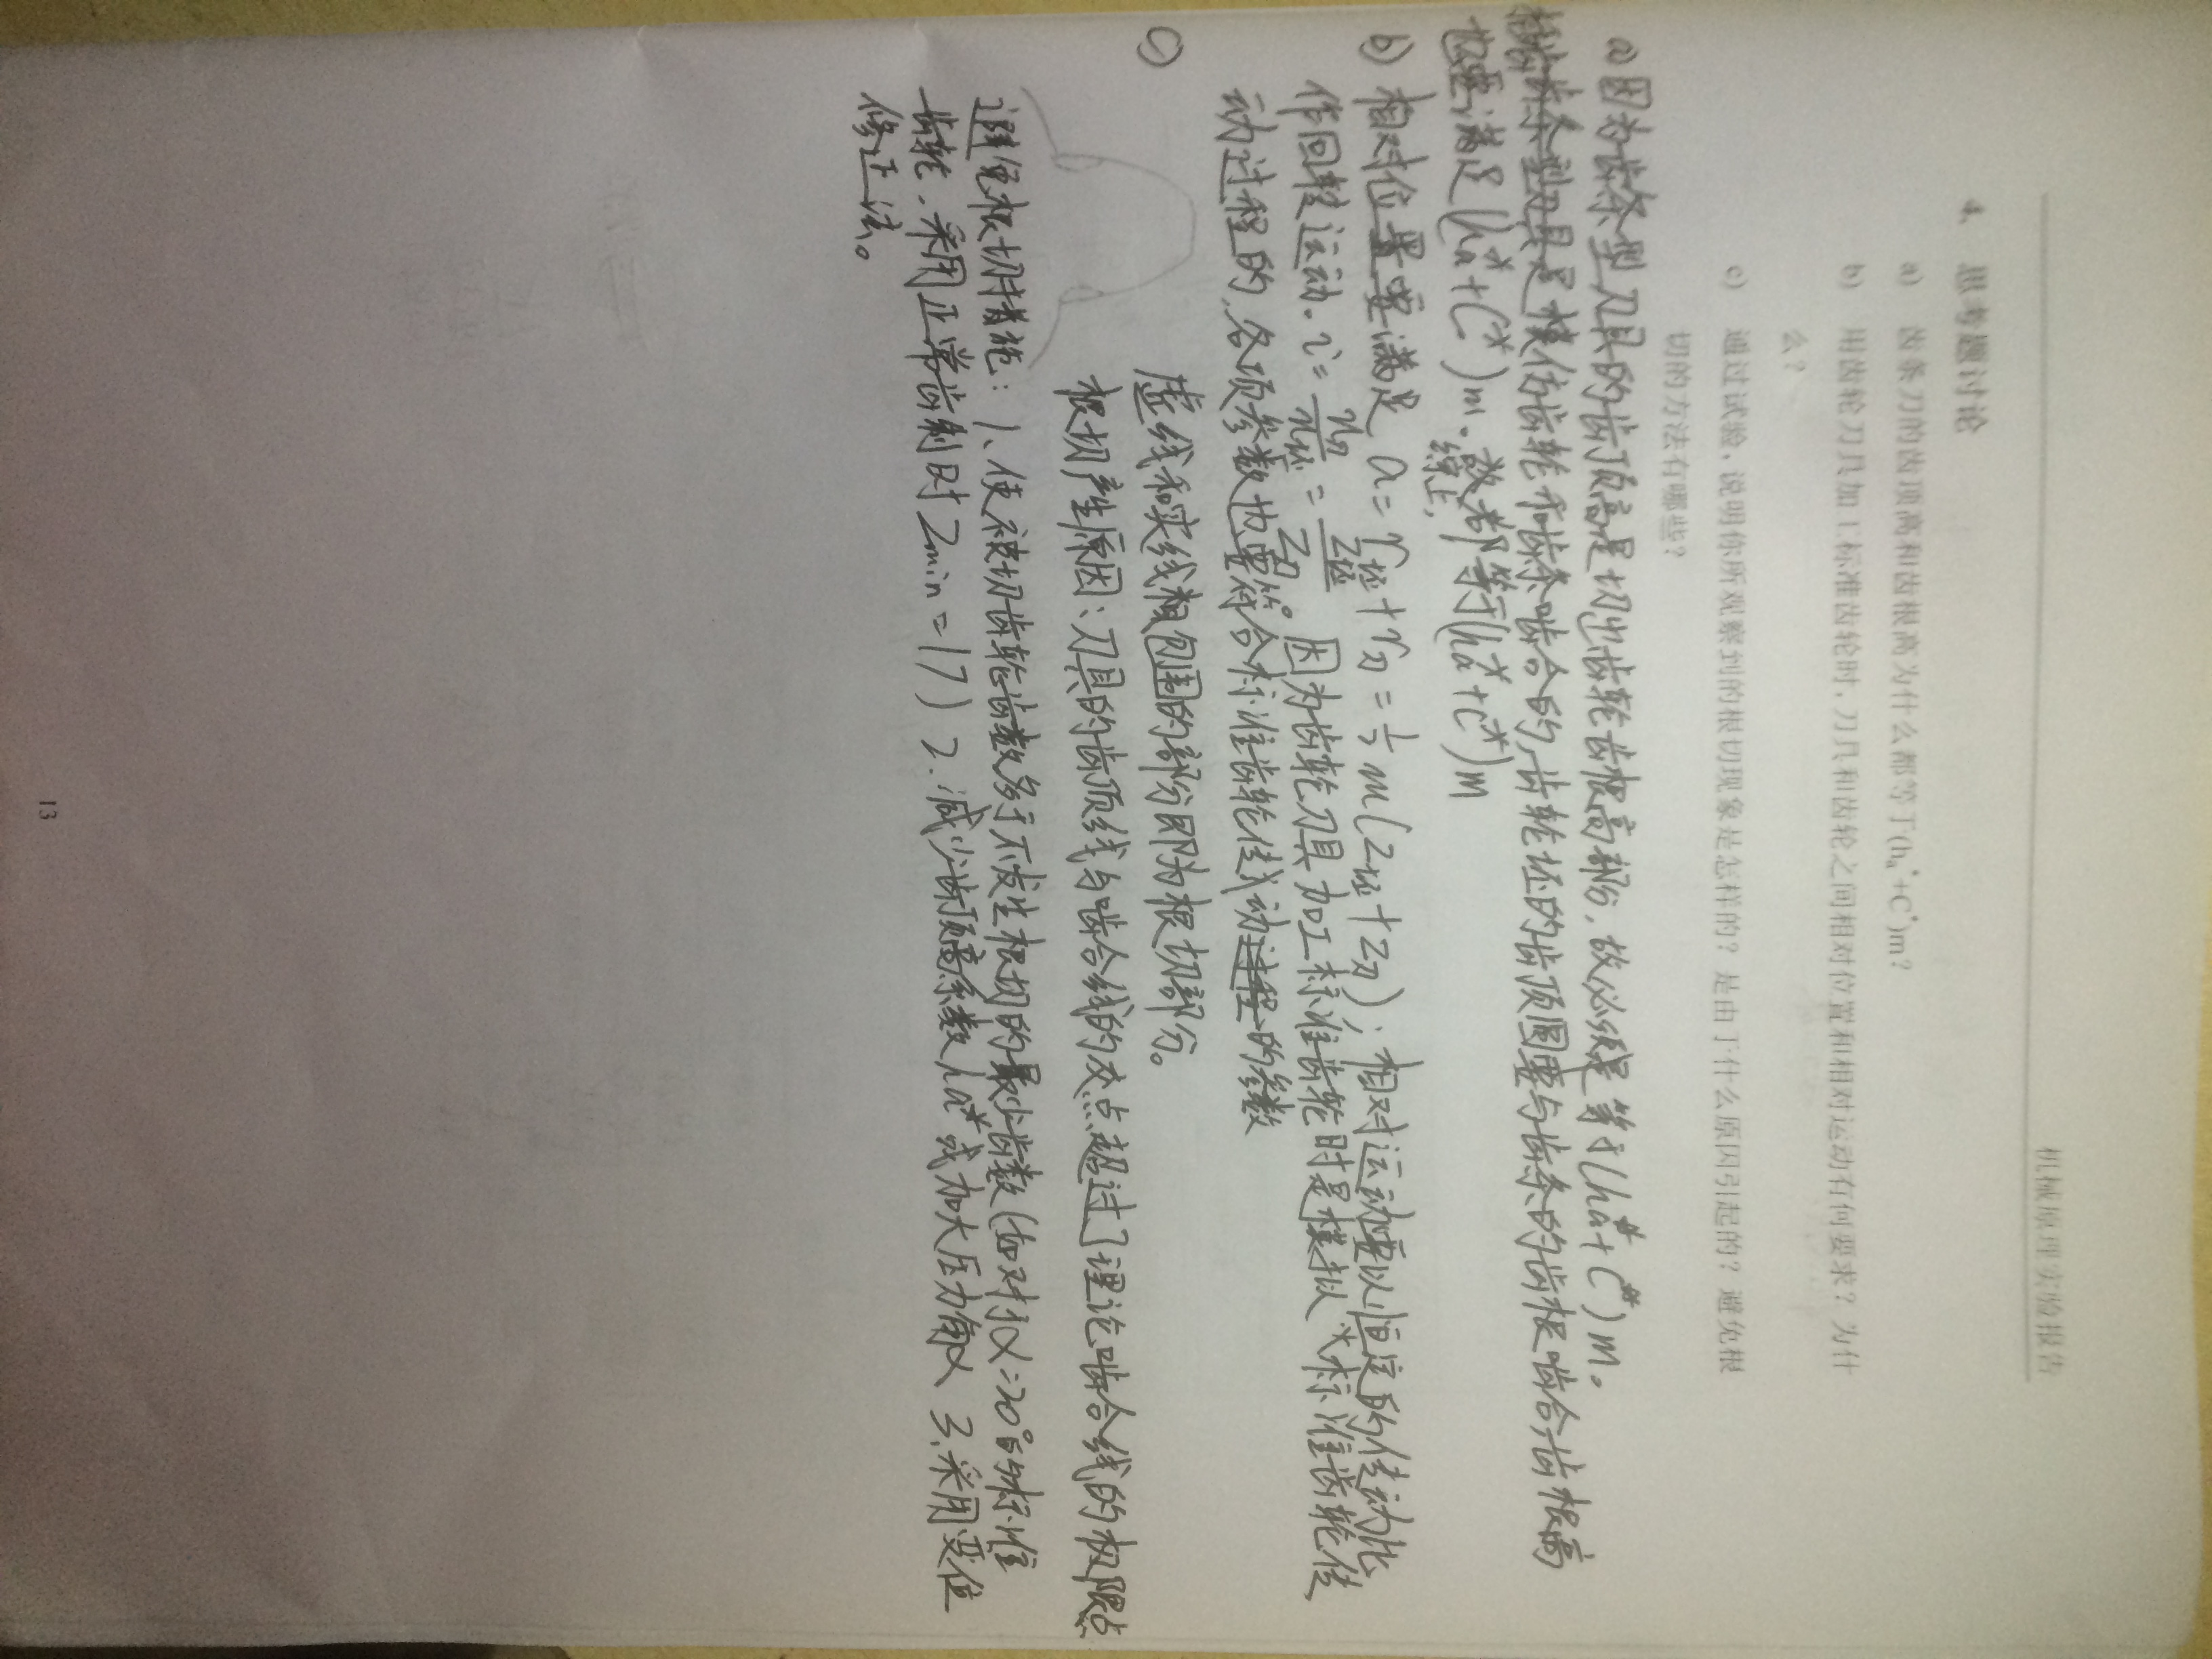 机械原理实验报告
4. 思考题讨论
a) 齿条刀的齿顶高和齿根高为什么都等于(ha*+C*)m?
b) 用齿轮刀具加工标准齿轮时,刀具和齿轮之间相对位置和相对运动有何要求?为什
么?
c) 通过试验,说明你所观察到的根切现象是怎样的?是由于什么原因引起的?避免根
切的方法有哪些?
a) 因为齿条型刀具的齿顶高是切出齿轮齿根高部分,故必须是等于(ha*+C*)m。
齿条型刀具是模仿齿轮和齿条啮合的,齿轮坯的齿顶圆要与齿条的齿根啮合齿根高
也要满足(ha*+C*)m. 综上,故都等于(ha*+C*)m
b) 相对位置要满足 a=r坯+r刀=½m(Z坯+Z刀);相对运动要以恒定的传动比
作回转运动. i=n刀/n坯=Z坯/Z刀。因为齿轮刀具加工标准齿轮时是模拟标准齿轮传
动过程的,各项参数也要符合标准齿轮传动过程的参数
c)
虚线和实线粗包围的部分即为根切部分。
根切产生原因:刀具的齿顶线与啮合线的交点超过了理论啮合线的极限点
避免根切措施:1、使被切齿轮齿数多于不发生根切的最少齿数(如对于α=20°的标准
齿轮,采用正常齿制时Zmin=17) 2.减少齿顶高系数ha*或加大压力角α 3.采用变位
修正法。
13